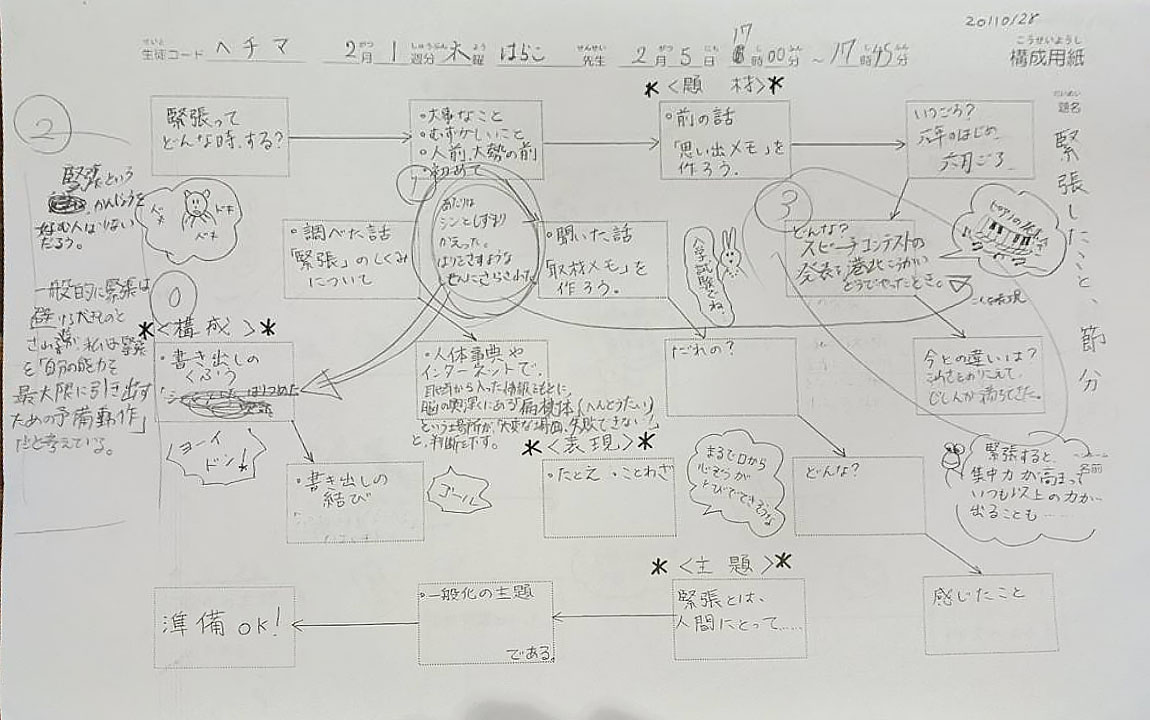 20110128
生徒コード ヘチマ 2月1週分 木曜 はらこ 先生 2月5日 17時00分～17時45分
構成用紙
題名
緊張したこと、節分
＊〈題材〉＊
緊張って
どんな時、する?
・大事なこと
・むずかしいこと
・人前、大勢の前
・初めて
・前の話
「思い出メモ」を
作ろう。
いつごろ?
六年のはじめ
六月ごろ
②
緊張という
かんじょうを
好む人はいない
だろう。
一般的に緊張は
避けるべきものと
される が、私は緊張
を「自分の能力を
最大限に引き出す
ための予備動作」
だと考えている。
ドキ
ドキ
ドキ
・調べた話
「緊張」のしくみ
について
あたりは
シンとしずまり
かえった。
はりさすような
せんにさらされた
・聞いた話
「取材メモ」を
作ろう。
入学試験とかね
③
どんな?
スピーチコンテストの
ピアノの
＊〈構成〉＊
・書き出しの
くふう
・人体事典や
インターネットで、
という場所が、「大変な場面、失敗できない!」
と、判断を下す。
だれの?
今との違いは?
ヨーイ
ドン!
・書き出しの
結び
ゴール
＊〈表現〉＊
・たとえ ・ことわざ
まるで口から
心ぞうが
とびでてきそうな
どんな?
名前
緊張すると、
集中力が高まって
いつも以上の力が
出ることも……
＊〈主題〉＊
準備OK!
・一般化の主題
である。
緊張とは、
人間にとって……
感じたこと